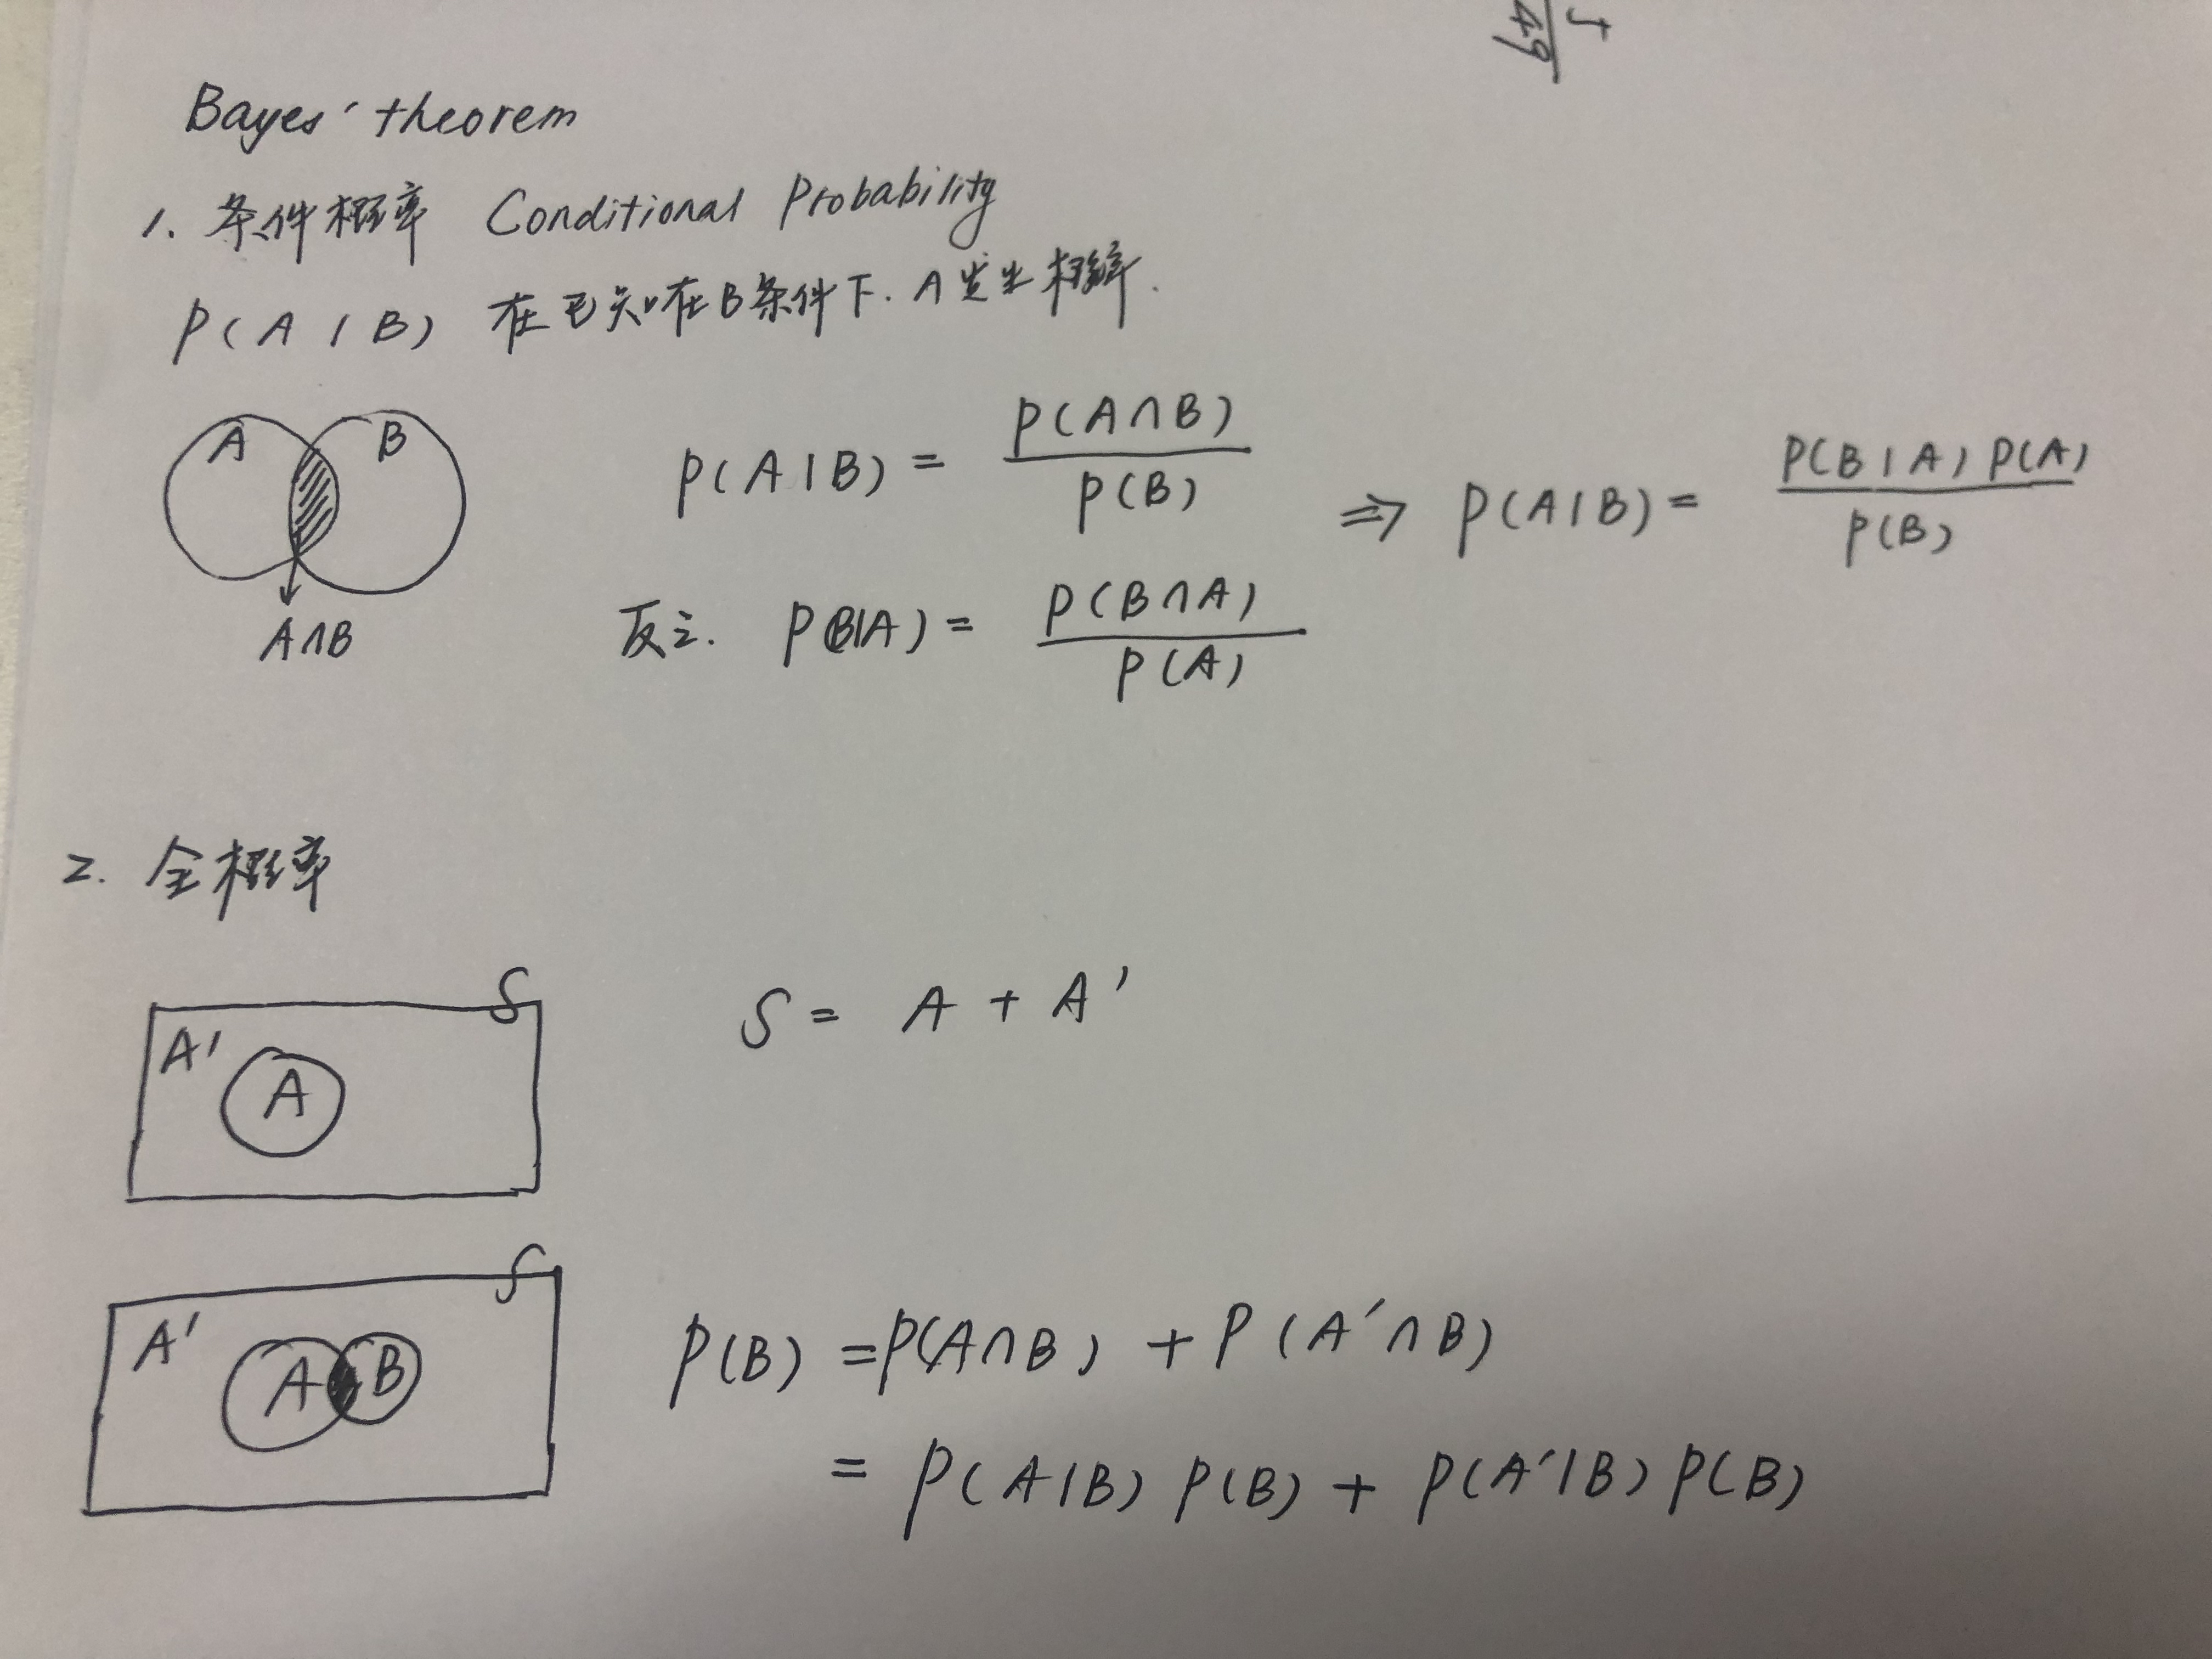 5/49
Bayes' theorem
1. 条件概率 Conditional Probability
P(A|B) 在已知在B条件下. A发生概率.
A B
A∩B
P(A|B) = P(A∩B)/P(B) ⇒ P(A|B) = P(B|A)P(A)/P(B)
反之. P(B|A) = P(B∩A)/P(A)
2. 全概率
S
A'
A
S = A + A'
S
A'
A B
P(B) = P(A∩B) + P(A'∩B)
= P(A|B) P(B) + P(A'|B) P(B)